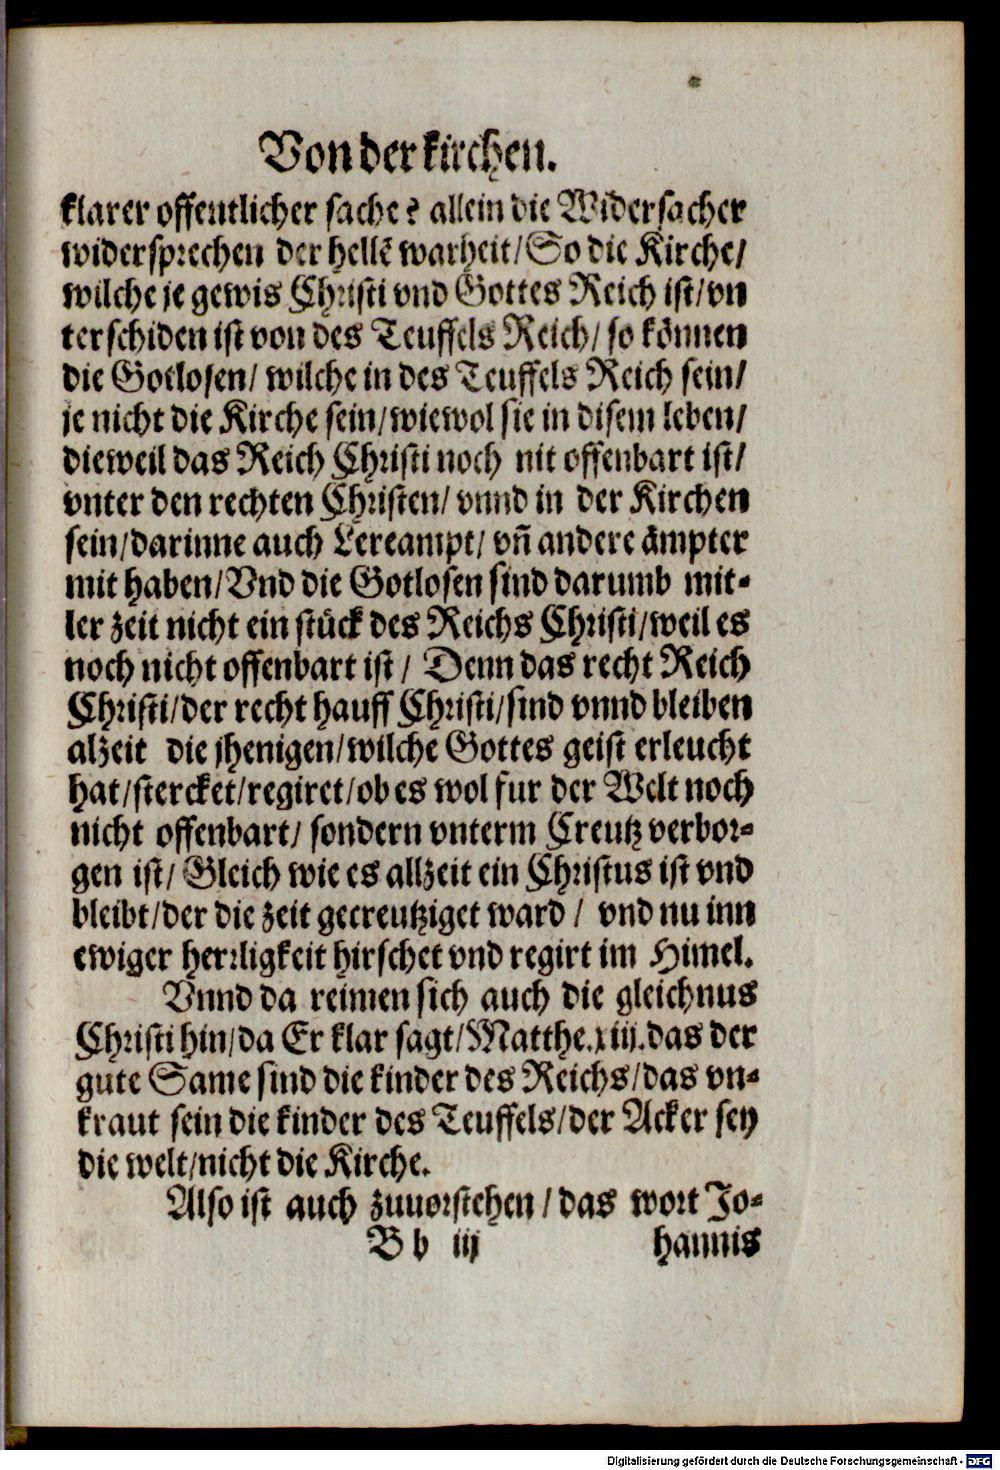 Von der kirchen.
klarer offentlicher sache? allein die Widersacher
widersprechen der hellẽ warheit/ So die Kirche/
wilche je gewis Christi vnd Gottes Reich ist/ vn
terschiden ist von des Teuffels Reich/ so können
die Gotlosen/ wilche in des Teuffels Reich sein/
je nicht die Kirche sein/ wiewol sie in disem leben/
dieweil das Reich Christi noch nit offenbart ist/
vnter den rechten Christen/ vnnd in der Kirchen
sein/ darinne auch Lereampt/ vñ andere ämpter
mit haben/ Vnd die Gotlosen sind darumb mit-
ler zeit nicht ein stück des Reichs Christi/ weil es
noch nicht offenbart ist/ Denn das recht Reich
Christi/ der recht hauff Christi/ sind vnnd bleiben
alzeit die jhenigen/ wilche Gottes geist erleucht
hat/ stercket/ regiret/ ob es wol fur der Welt noch
nicht offenbart/ sondern vnterm Creutz verbor-
gen ist/ Gleich wie es allzeit ein Christus ist vnd
bleibt/ der die zeit gecreutziget ward/ vnd nu inn
ewiger herrligkeit hirschet vnd regirt im Himel.
Vnnd da reimen sich auch die gleichnus
Christi hin/ da Er klar sagt/ Matthe. xiij. das der
gute Same sind die kinder des Reichs/ das vn-
kraut sein die kinder des Teuffels/ der Acker sey
die welt/ nicht die Kirche.
Also ist auch zuuorstehen/ das wort Jo-
B b iij hannis
Digitalisierung gefördert durch die Deutsche Forschungsgemeinschaft - DFG